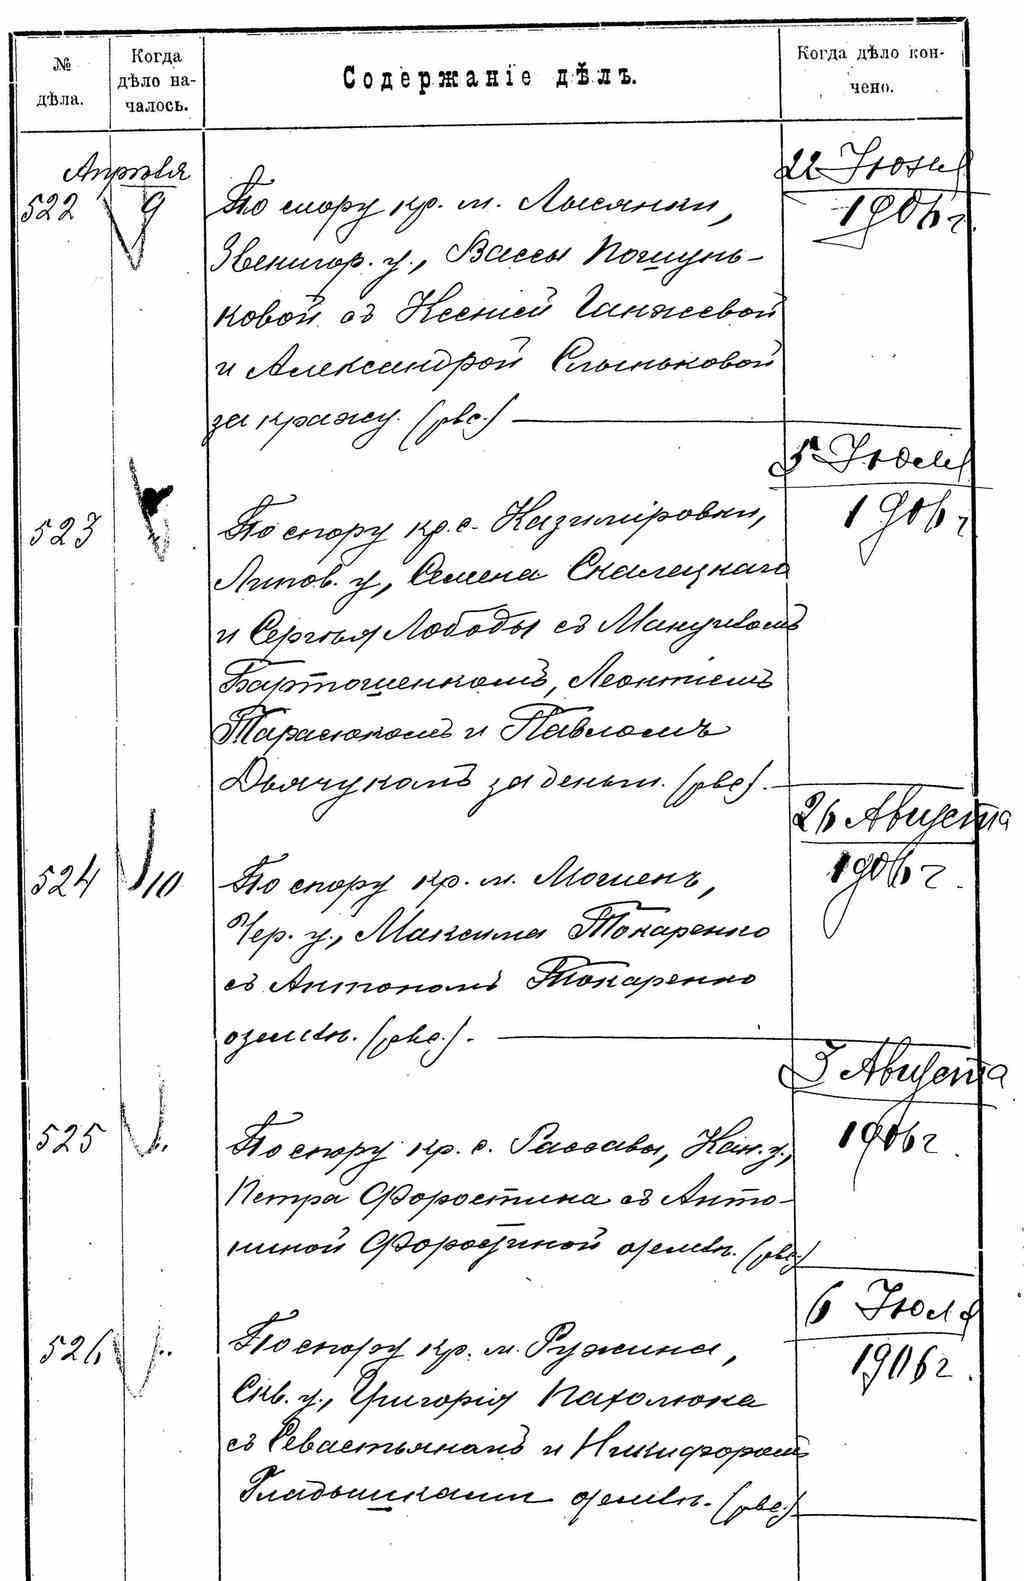 № дѣла.
Когда дѣло на-
чалось.
Содержаніе дѣлъ.
Когда дѣло кон-
чено.
Апрѣля
522
9
По спору кр. м. Лысянки,
Звенигор. у., Вассы Пошунь-
ковой съ Ксеніей Ганжевой
и Александрой Слыньковой
за кражу. (рвс.)
22 Іюня
1906 г.
523
По спору кр. с. Казиміровки,
Липов. у., Семена Скалецкаго
и Сергѣя Лободы съ Мануиломъ
Бартошенкомъ, Леонтіемъ
Тарасюкомъ и Павломъ
Дьячукомъ за деньги. (рвс).
5 Іюля
1906 г.
524
10
По спору кр. м. Мошенъ,
Чер. у., Максима Токаренко
съ Антономъ Токаренко
о землѣ. (рвс.).
26 Августа
1906 г.
525
По спору кр. с. Россавы, Кан. у.,
Петра Форостина съ Анто-
ниной Форостиной о землѣ. (рвс.)
3 Августа
1906 г.
526
По спору кр. м. Ружина,
Скв. у., Григорія Пахолюка
съ Севастьяномъ и Никифоромъ
Гладышками о землѣ. (рвс.)
6 Іюля
1906 г.